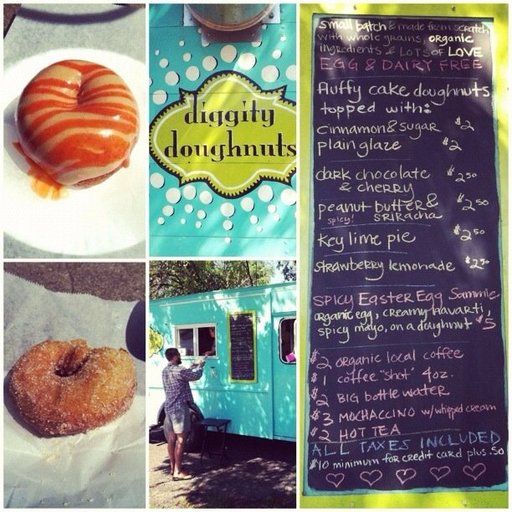 diggity
doughnuts
small batch & made from scratch
with whole grains, organic
ingredients & LOTS of LOVE
EGG & DAIRY FREE
fluffy cake doughnuts
topped with:
cinnamon & sugar $2
plain glaze
dark chocolate
& cherry $2.50
peanut butter &
spicy! SRIRACHA $2.50
key lime pie $2.50
strawberry lemonade $2.50
SPICY EASTER EGG Sammie
organic egg, creamy havarti,
spicy mayo, on a doughnut $5
$2 organic local coffee
$1 coffee "shot" 4oz.
$2 BIG bottle water
$3 MOCHACCINO w/whipped cream
$2 HOT TEA
ALL TAXES INCLUDED
$10 minimum for credit card plus .50